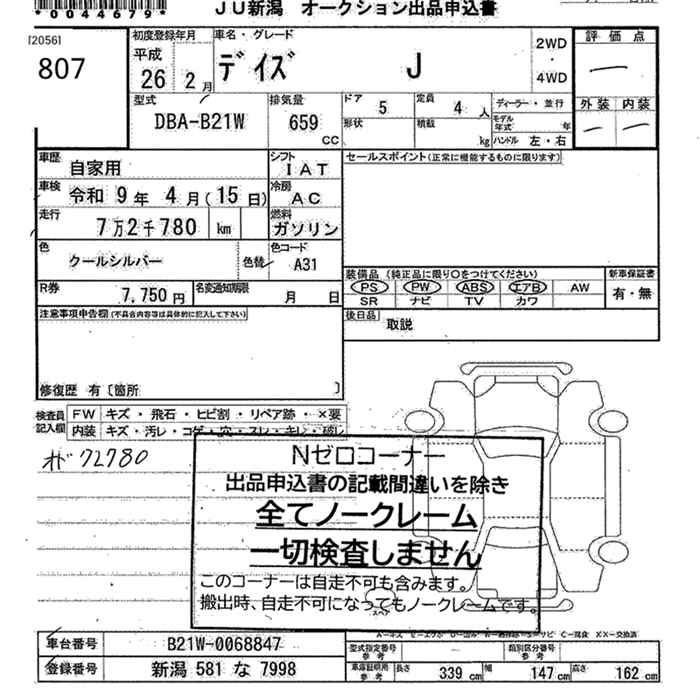 *0044679*
JU新潟 オークション出品申込書
[2056]
807
初度登録年月
平成
26 2月
車名・グレード
デイズ J
2WD
・
4WD
評価点
外装 内装
型式
DBA-B21W
排気量
659 cc
ドア 5
定員 4人
形状
積載 kg
ディーラー・並行
モデル年式 年
ハンドル 左・右
車歴 自家用
シフト IAT
セールスポイント(正常に機能するものに限ります)
車検 令和 9年 4月(15日)
冷房 AC
走行 7万2千780 km
燃料 ガソリン
色 クールシルバー 色替
色コード A31
R券 7,750円
名変通知期限 月 日
装備品(純正品に限り○をつけてください)
PS PW ABS エアB AW
SR ナビ TV カワ
新車保証書
有・無
注意事項申告欄(不具合内容等は具体的に記入して下さい)
後日品 取説
修復歴 有〔箇所 〕
検査員記入欄
FW キズ・飛石・ヒビ割・リペア跡・×要
内装 キズ・汚レ・コゲ・穴・スレ・キレ・破レ
オド 72780
Nゼロコーナー
出品申込書の記載間違いを除き
全てノークレーム
一切検査しません
このコーナーは自走不可も含みます。
搬出時、自走不可になってもノークレームです。
スペア
車台番号 B21W-0068847
登録番号 新潟 581 な 7998
型式指定番号 参考
類別区分番号 参考
車庫証明用 参考
長さ 339 cm 幅 147 cm 高さ 162 cm